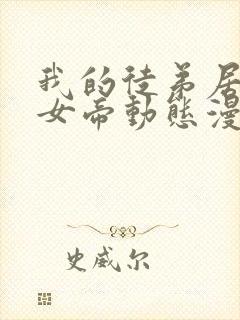 我的徒弟居
女帝動態漫
史威尔